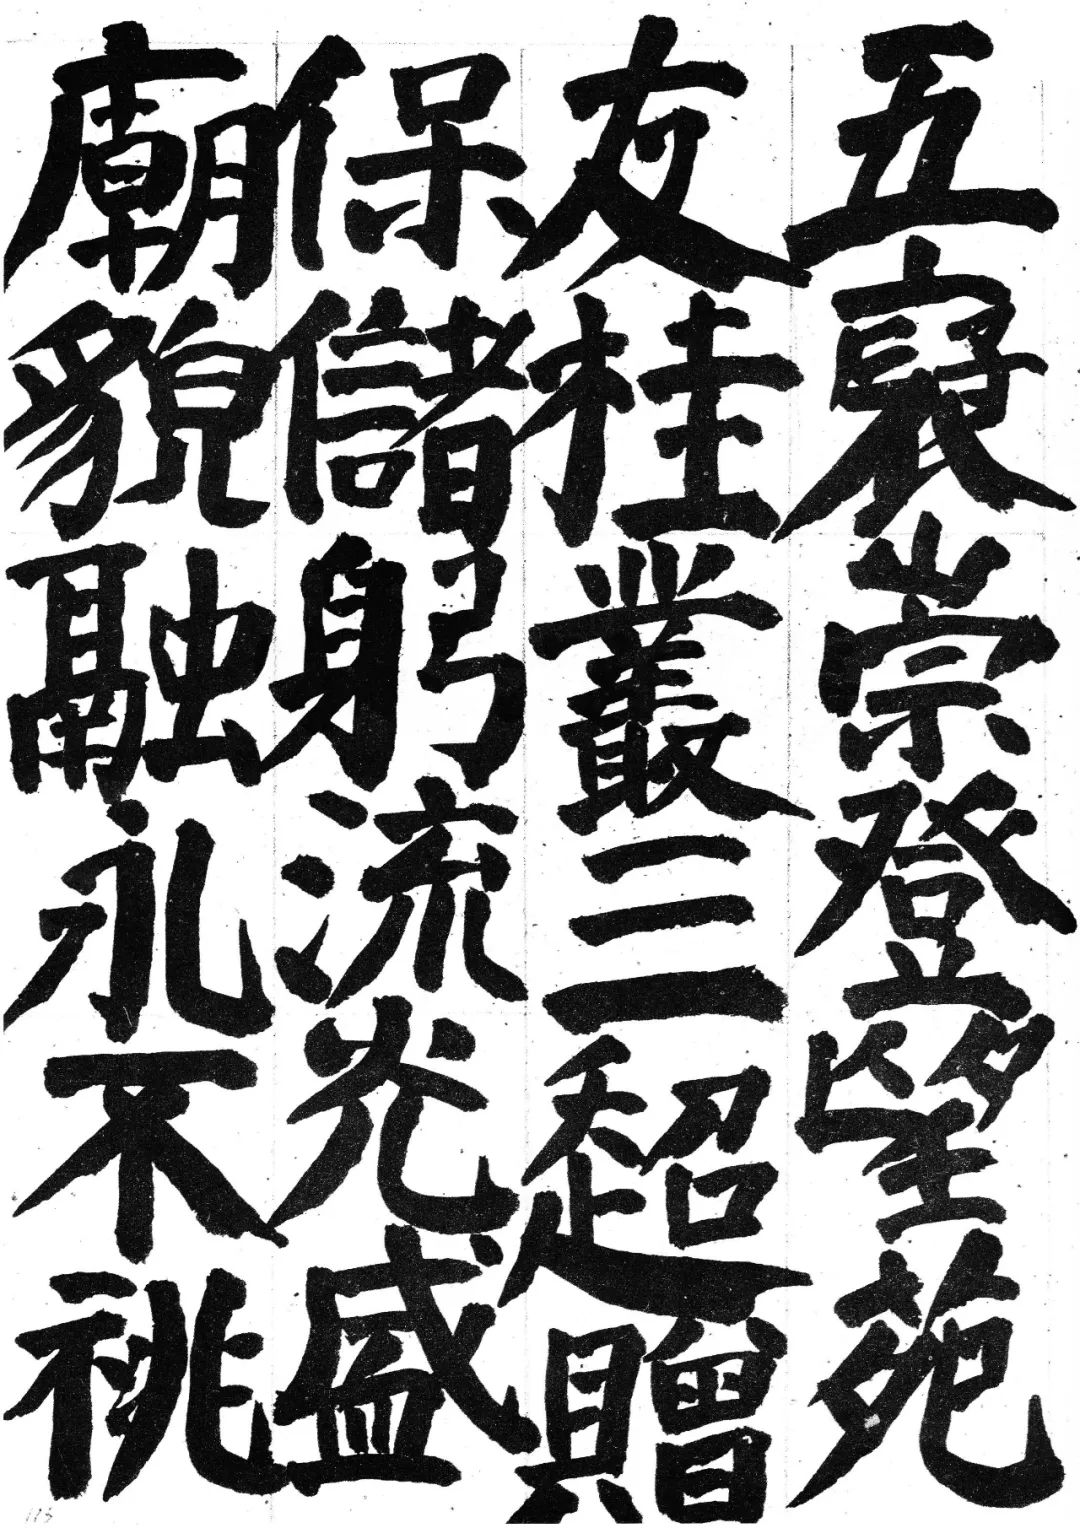 五褒崇登望苑
友桂叢三超贈
保儲躬流光盛
廟貌融永不祧